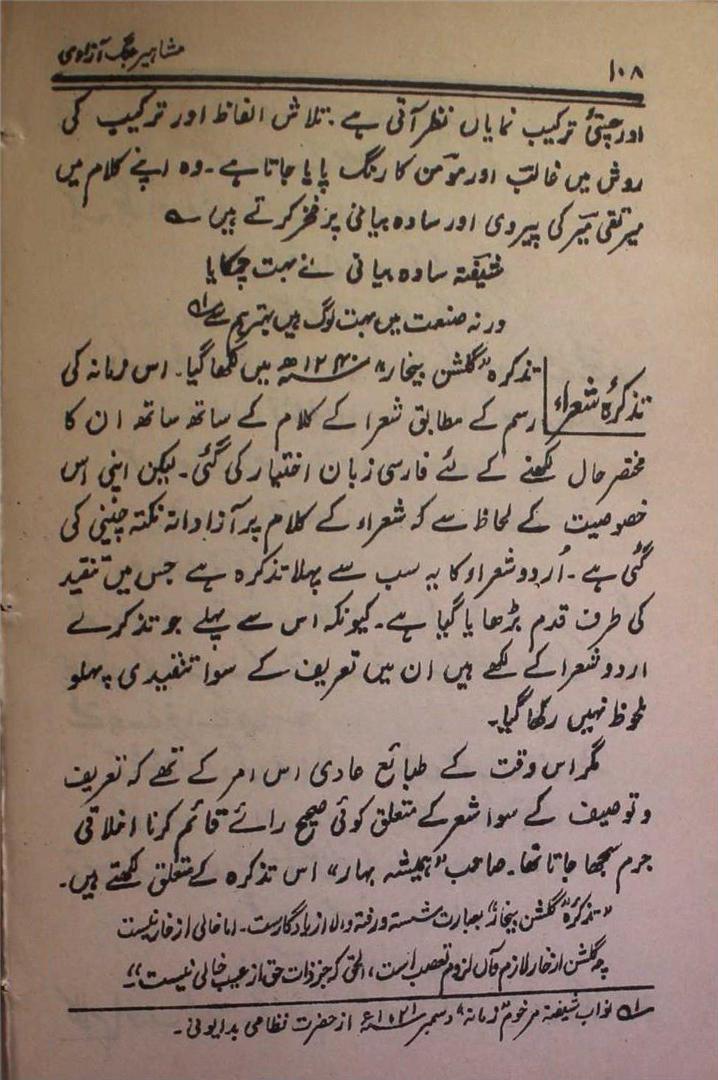 ۱۰۸
مشاہیر جنگ آزادی
اور چستیٔ ترکیب نمایاں نظر آتی ہے۔ تلاش الفاظ اور ترکیب کی
روش میں غالبؔ اور مومنؔ کا رنگ پایا جاتا ہے۔ وہ اپنے کلام میں
میر تقی میرؔ کی پیروی اور سادہ بیانی پر فخر کرتے ہیں ؎
شیفتہؔ سادہ بیانی نے ہمیں چمکایا
ورنہ صنعت میں بہت لوگ ہیں بہتر ہم سے ؎۱
تذکرۂ شعراء
تذکرہ "گلشن بیخار" ۱۲۴۰ھ میں لکھا گیا۔ اس زمانہ کی
رسم کے مطابق شعرا کے کلام کے ساتھ ساتھ ان کا
مختصر حال لکھنے کے لئے فارسی زبان اختیار کی گئی۔ لیکن اپنی اس
خصوصیت کے لحاظ سے کہ شعراء کے کلام پر آزادانہ نکتہ چینی کی
گئی ہے۔ اُردو شعراء کا یہ سب سے پہلا تذکرہ ہے جس میں تنقید
کی طرف قدم بڑھایا گیا ہے۔ کیونکہ اس سے پہلے جو تذکرے
اردو شعرا کے لکھے ہیں ان میں تعریف کے سوا تنقیدی پہلو
ملحوظ نہیں رکھا گیا۔
مگر اس وقت کے طبائع عادی اس امر کے تھے کہ تعریف
و توصیف کے سوا شعر کے متعلق کوئی صحیح رائے قائم کرنا اخلاقی
جرم سمجھا جاتا تھا۔ صاحب "ہمیشہ بہار" اس تذکرہ کے متعلق لکھتے ہیں۔
"تذکرۂ گلشن بیخار" بعبارت شستہ و رفتہ والا از یادگارست۔ اما خالی از خار نیست
چہ گلشن از خار لازم و آں لزوم تعصب است، الحق کہ جز ذات حق از عیب خالی نیست"۔
؎۱ نواب شیفتہ مرحوم "زمانہ" دسمبر ۱۰۲۱ء از حضرت نظامی بدایونی۔